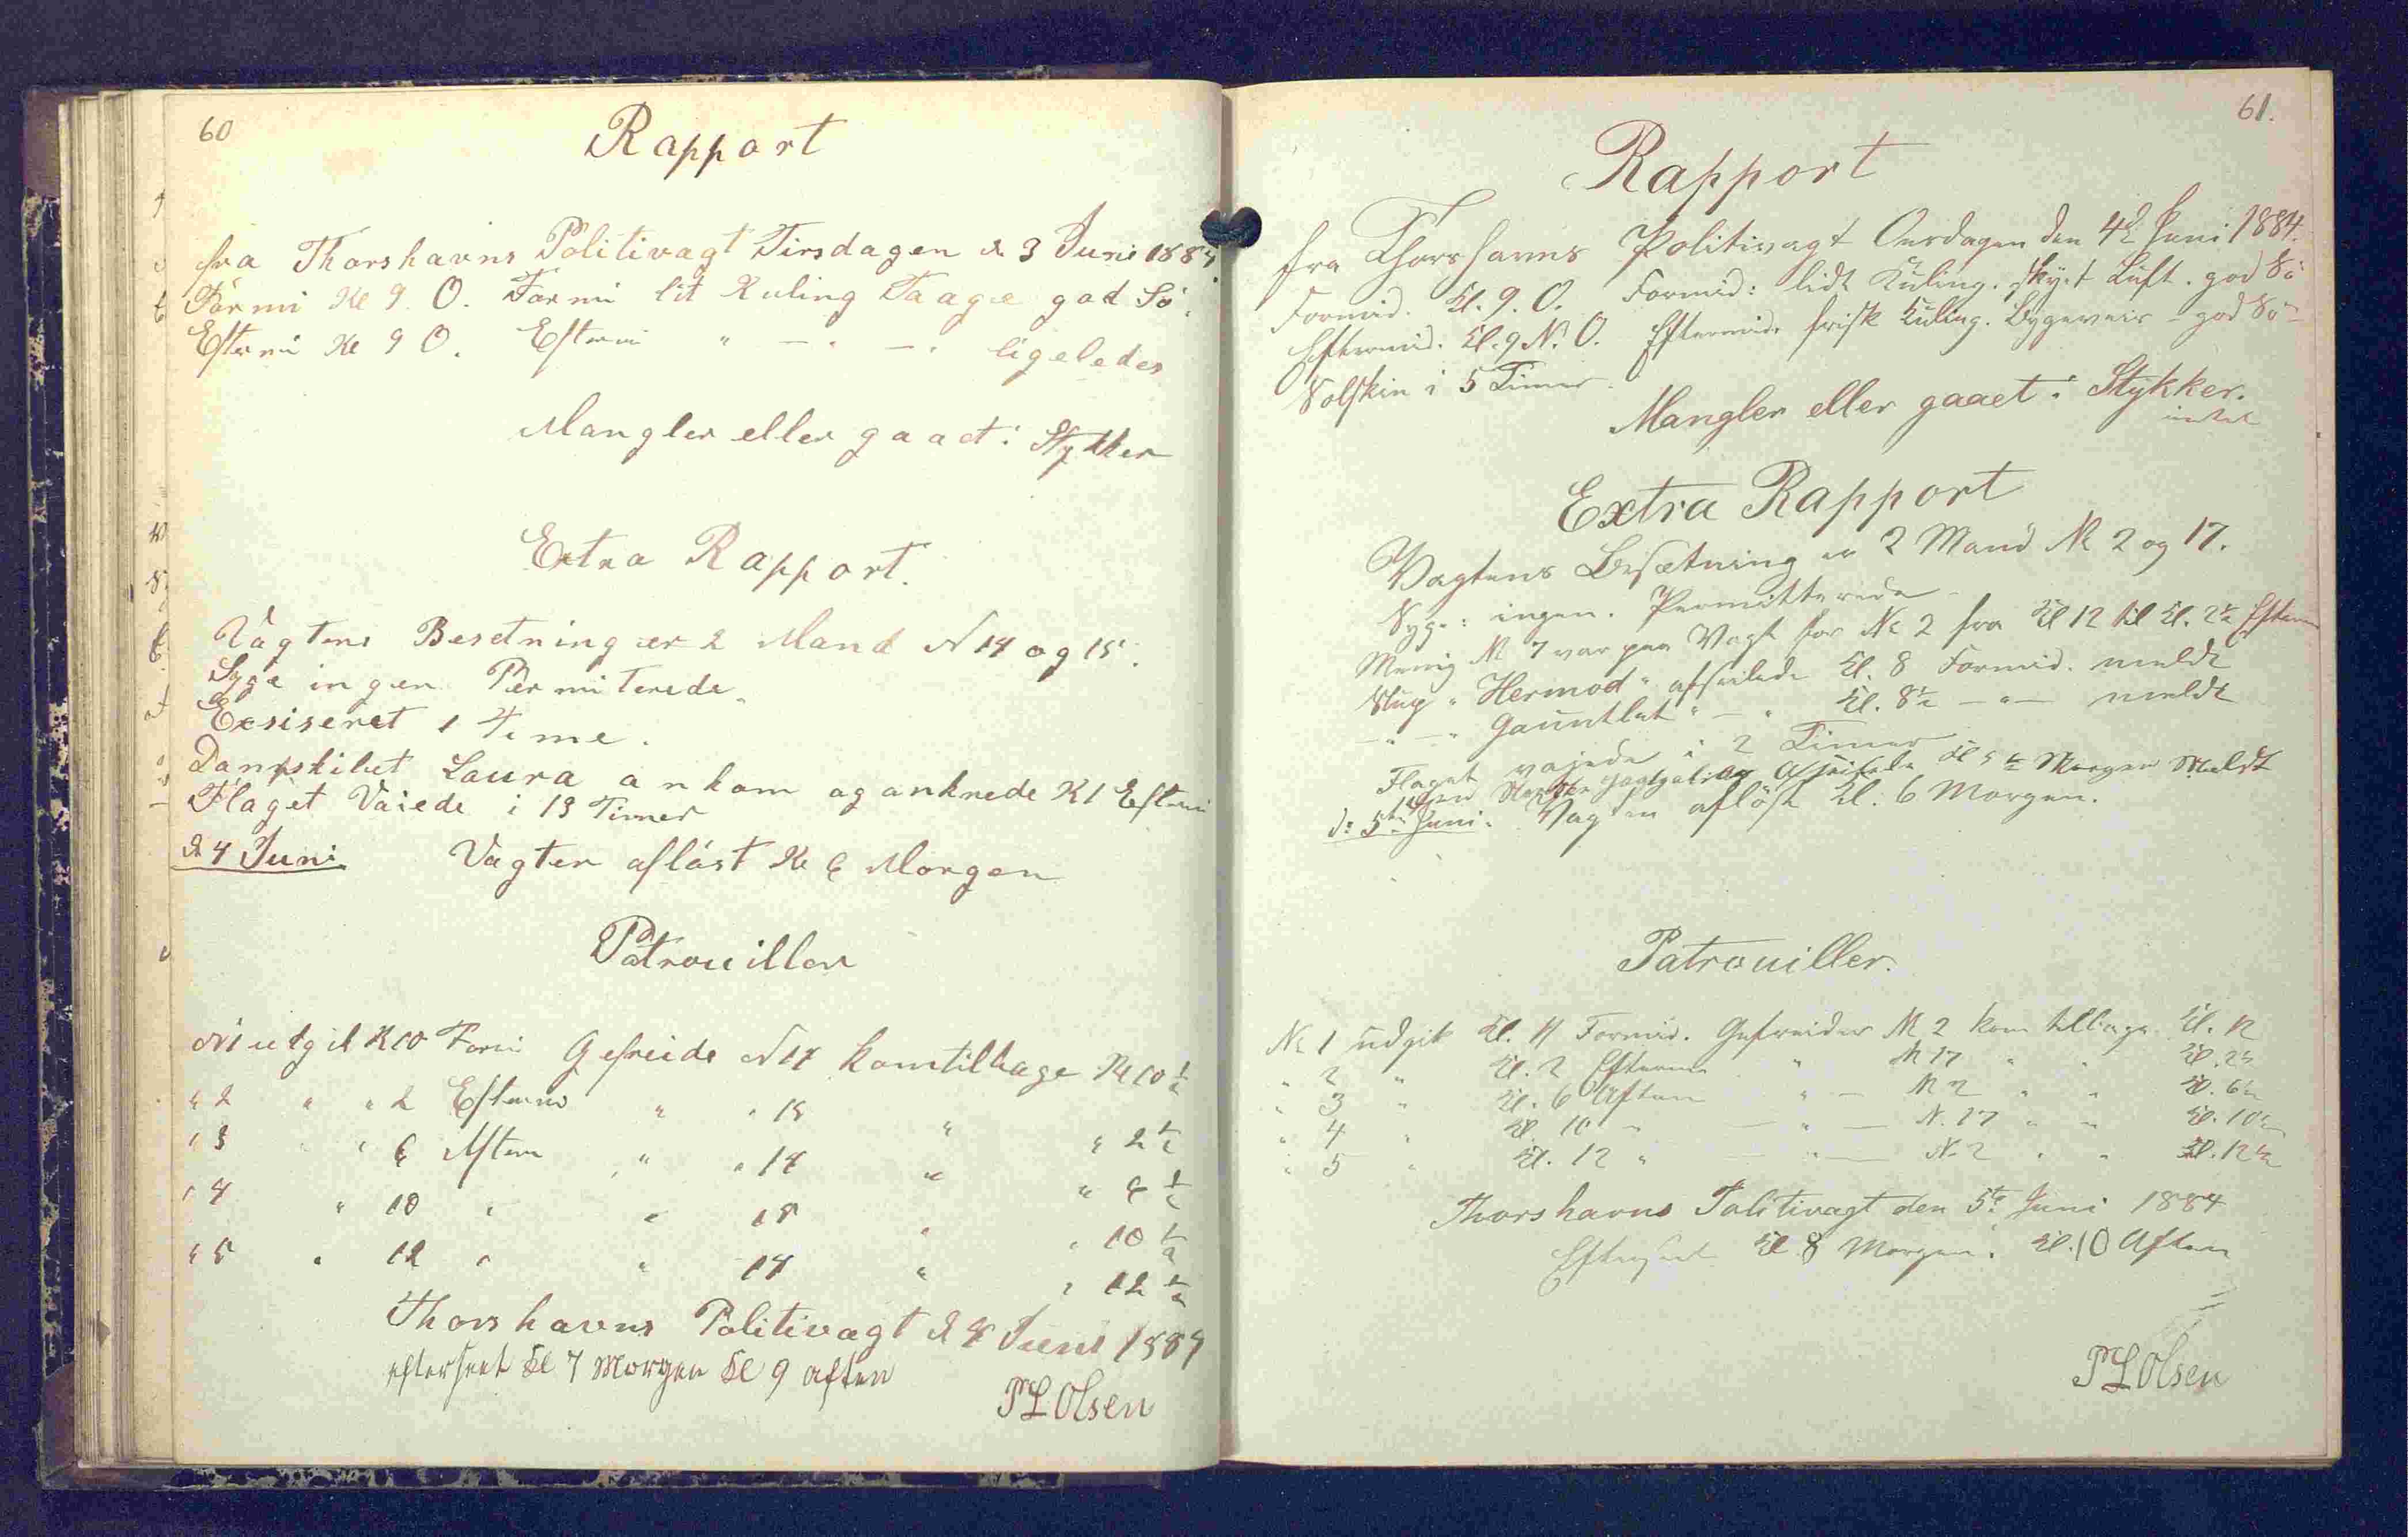 60
Rapport
fra Thorshavns Politivagt Tirsdagen d. 3 Juni 1884.
Formi Kl 9. O. Formi lit Kuling Taage god Sö.
Eftemi Kl 9 O. Eftemi " — " — " ligeledes
Mangler eller gaaet i Stykker
Extra Rapport.
Vagtens Besetning er 2 Mand N 14 og 15.
Syge ingen Permiterede
Exsiseret 1 Time.
Dampskibet Laura ankom og ankrede Kl 1 Eftemi
Flaget Vaiede i 13 Timer
d 4 Juni Vagten aflöst Kl 6 Morgen
Patrouiller
N1 udgik Kl 10 Formi Gefreide N 14 kom tilbage Kl 10 1/2
" 2 " " 2 Eftemi " " 15 " " 2 1/2
" 3 " " 6 Aften " " 14 " " 6 1/2
" 4 " 10 " " 15 " " 10 1/2
" 5 " 12 " " 14 " " 12 1/2
Thorshavns Politivagt d 4 Juni 1884
efterseet Kl 7 Morgen Kl 9 aften
PL Olsen
61.
Rapport
fra Thorshavns Politivagt Onsdagen den 4de Juni 1884.
Formid. Kl. 9. O. Formid: lidt Kuling. skyet Luft. god Sö
Eftermid. Kl. 9 N. O. Eftermid. frisk Kuling. Bygeveir god Sö
Solskin i 5 Timer.
Mangler eller gaaet i Stykker.
intet
Extra Rapport
Vagtens Besætning er 2 Mand No 2 og 17.
Syge: ingen. Permitterede
Menig No 7 var paa Vagt for No 2 fra Kl 12 til Kl. 2 1/2 Efterm
Slup "Hermod" afseilede Kl. 8 Formid. meldt
— " — " Gauntlet " — " Kl. 8 1/2 — " — meldt
Flaget vajede i 2 Timer
Norske Afseilede Kl 5 1/2 Morgen Meldt
d: 5te Juni. Vagten aflöst Kl. 6 Morgen.
Patrouiller.
No 1 udgik Kl. 11 Formid. Gefreider No 2 kom tilbage Kl. 12
" 2 " Kl. 2 Efterm " No 17 " " Kl. 2 1/2
" 3 " Kl. 6 Aften " — No 2 " " Kl. 6 1/2
" 4 " Kl. 10 " — " — N. 17 " " Kl. 10 1/2
" 5 " Kl. 12 " — " — N. 2 " " Kl. 12 1/2
Thorshavns Politivagt den 5te Juni 1884
Efterseet Kl 8 Morgen. Kl. 10 Aften
PL Olsen